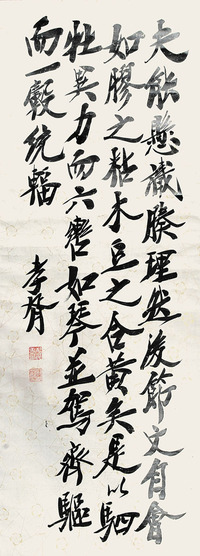 夫能懸識腠理然後節文自會
如膠之粘木豆之合黃矣是以駟
牡異力而六轡如琴並駕齊驅
而一轂統輻
孝胥